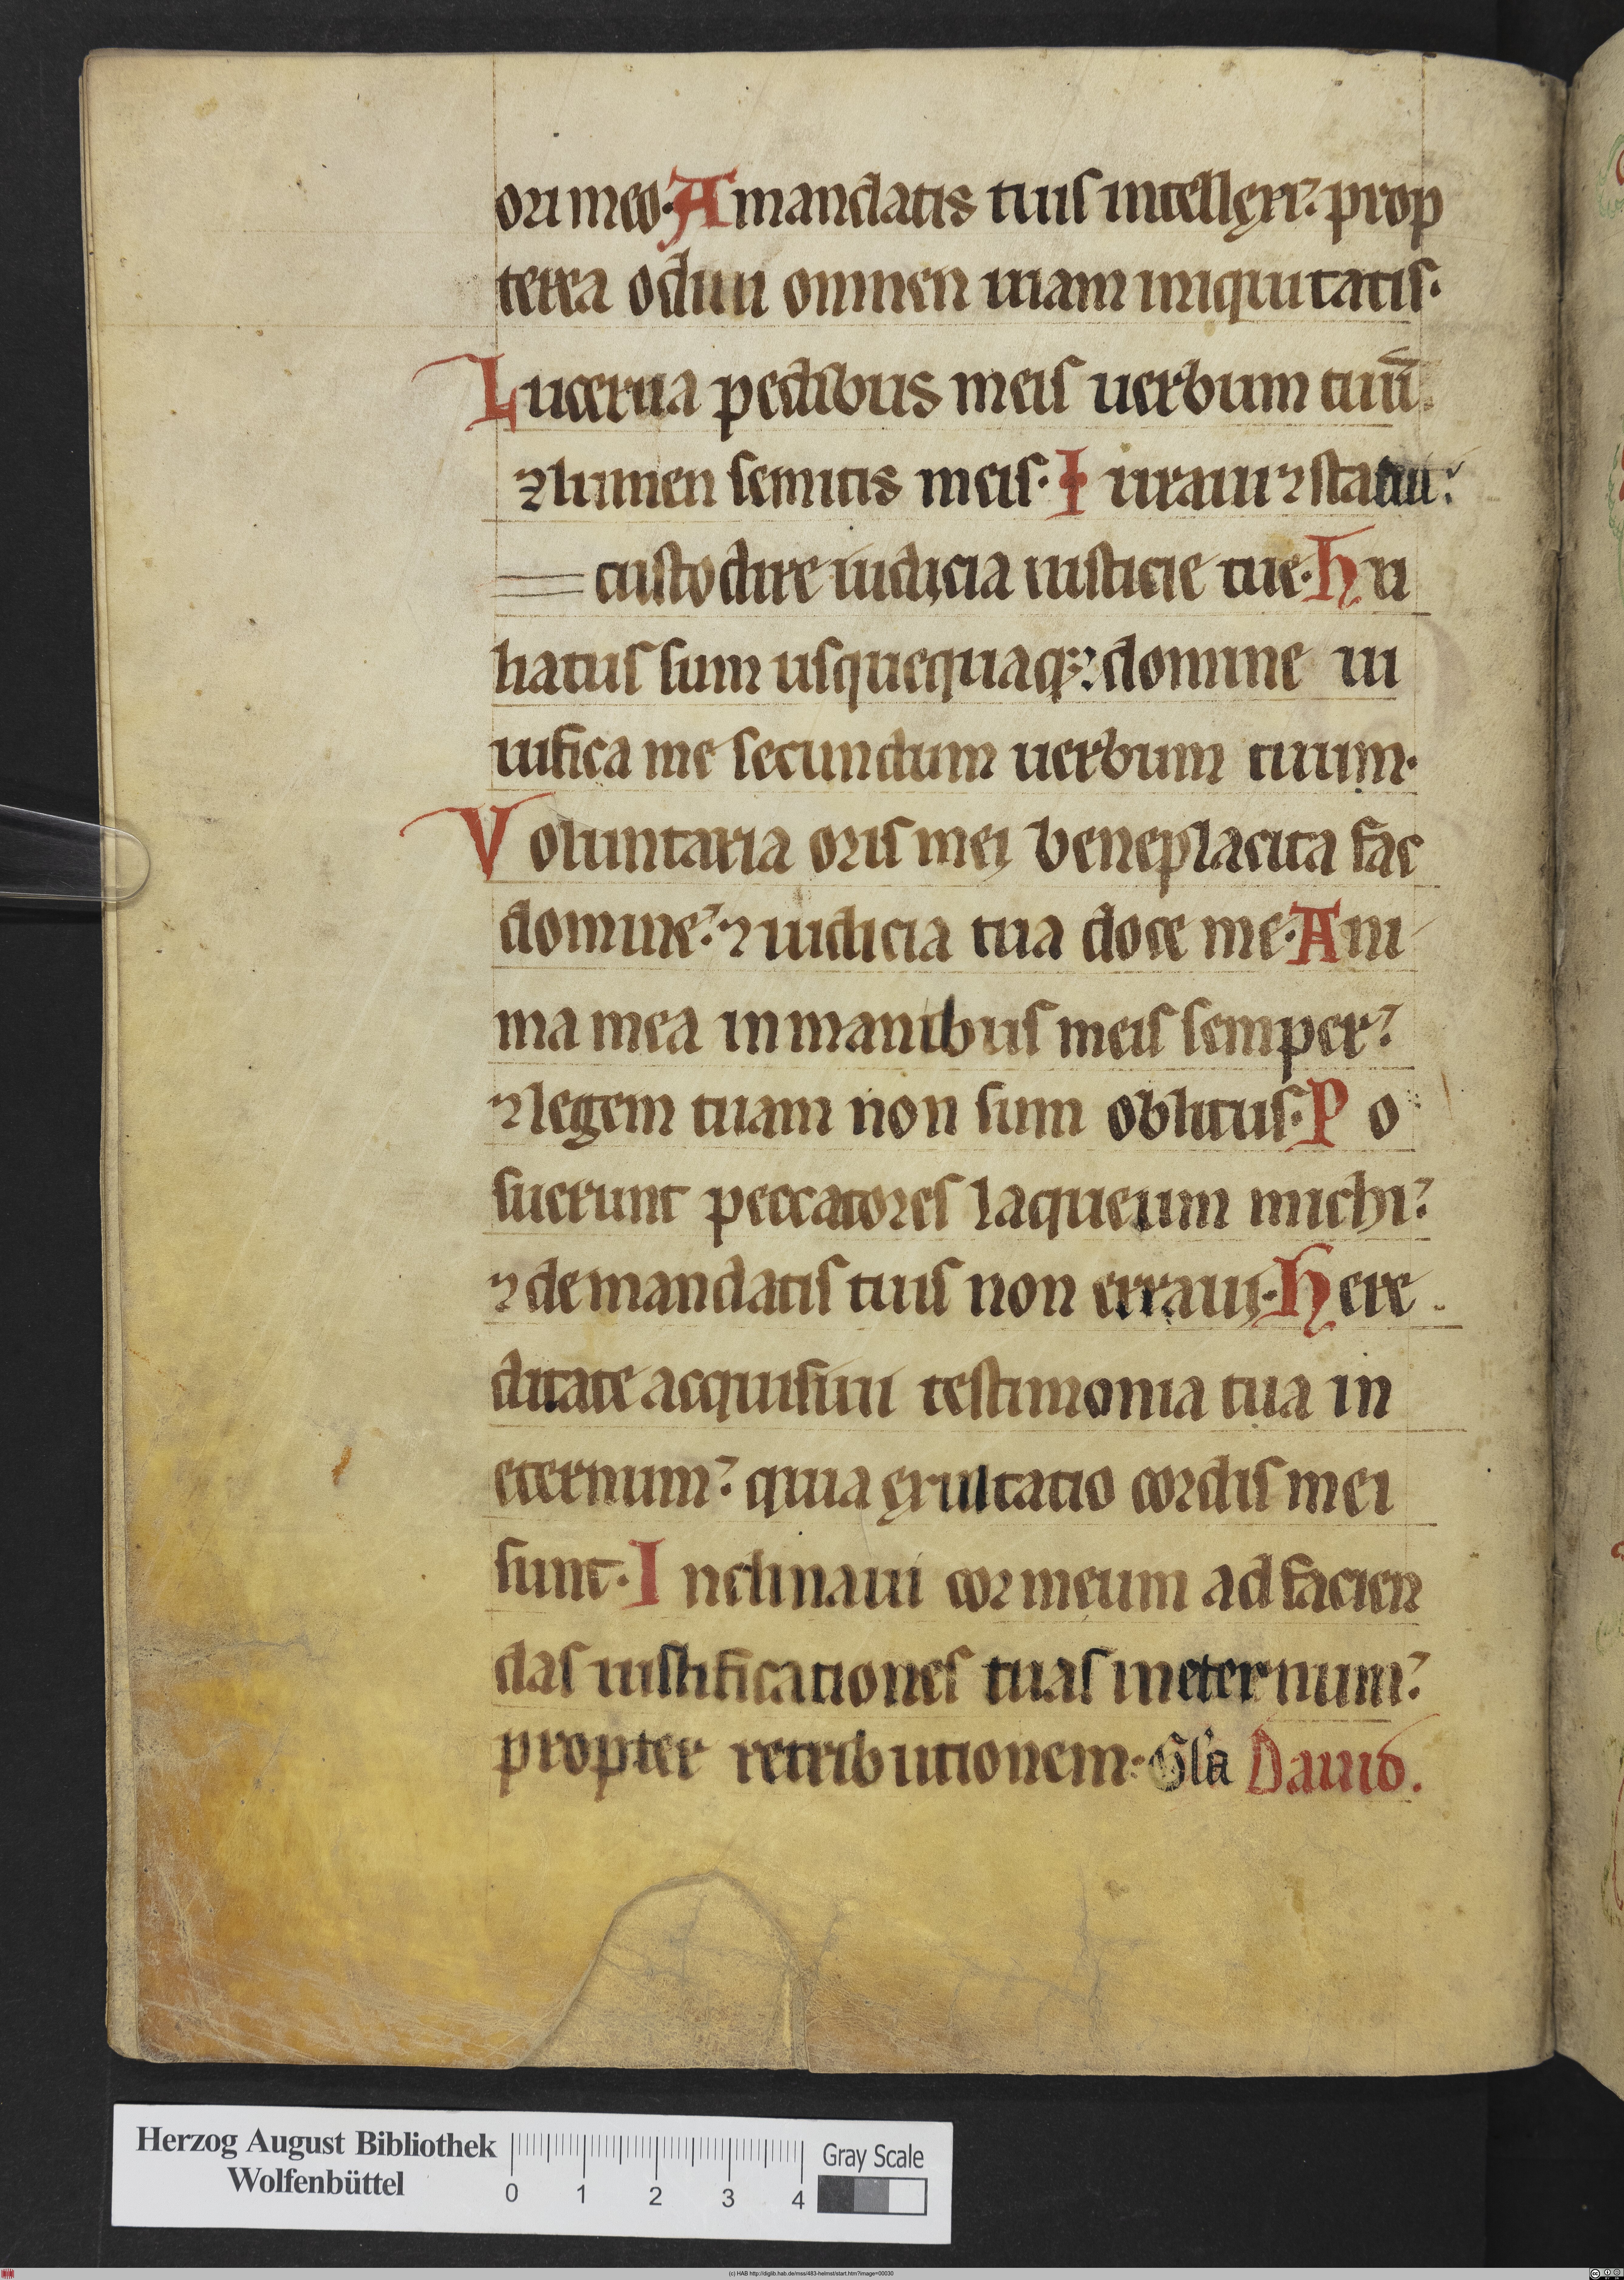 ori meo. A mandatis tuis intellexi: prop
terea odiui omnem uiam iniquitatis.
Lucerna pedibus meis uerbum tuū.
⁊ lumen semitis meis. Iuraui ⁊ statui:
custodire iudicia iusticie tue. Hu
hatus sum usquequaq; domine ui
uifica me secundum uerbum tuum.
Voluntaria oris mei beneplacita fac
domine: ⁊ iudicia tua doce me. Ani
ma mea in manibus meis semper:
⁊ legem tuam non sum oblitus. Po
suerunt peccatores laqueum michi:
⁊ de mandatis tuis non erraui. Here
ditate acquisiui testimonia tua in
eternum: quia exultatio cordis mei
sunt. Inclinaui cor meum ad facien
das iustificationes tuas in eternum:
propter retributionem. Gła Dauid.
Herzog August Bibliothek
Wolfenbüttel
0 1 2 3 4
Gray Scale
(c) HAB http://diglib.hab.de/mss/483-helmst/start.htm?image=00030